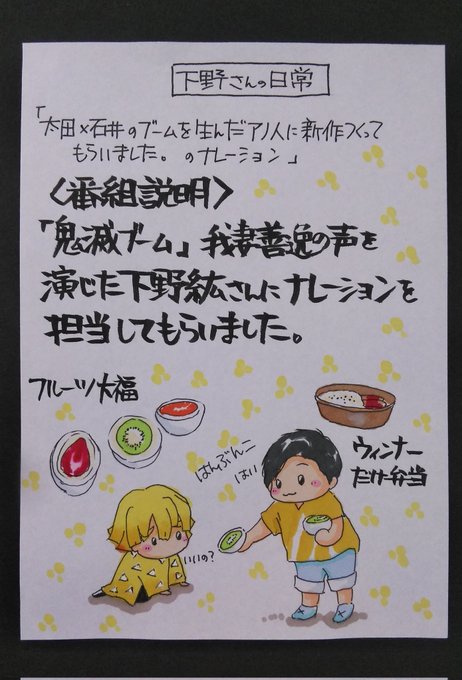 下野さんの日常
「太田×石井のブームを生んだアノ人に新作つくって
もらいました。のナレーション」
〈番組説明〉
「鬼滅ブーム」我妻善逸の声を
演じた下野紘さんにナレーションを
担当してもらいました。
フルーツ大福
ウィンナー
だけ弁当
はんぶんこ
はい
いいの?